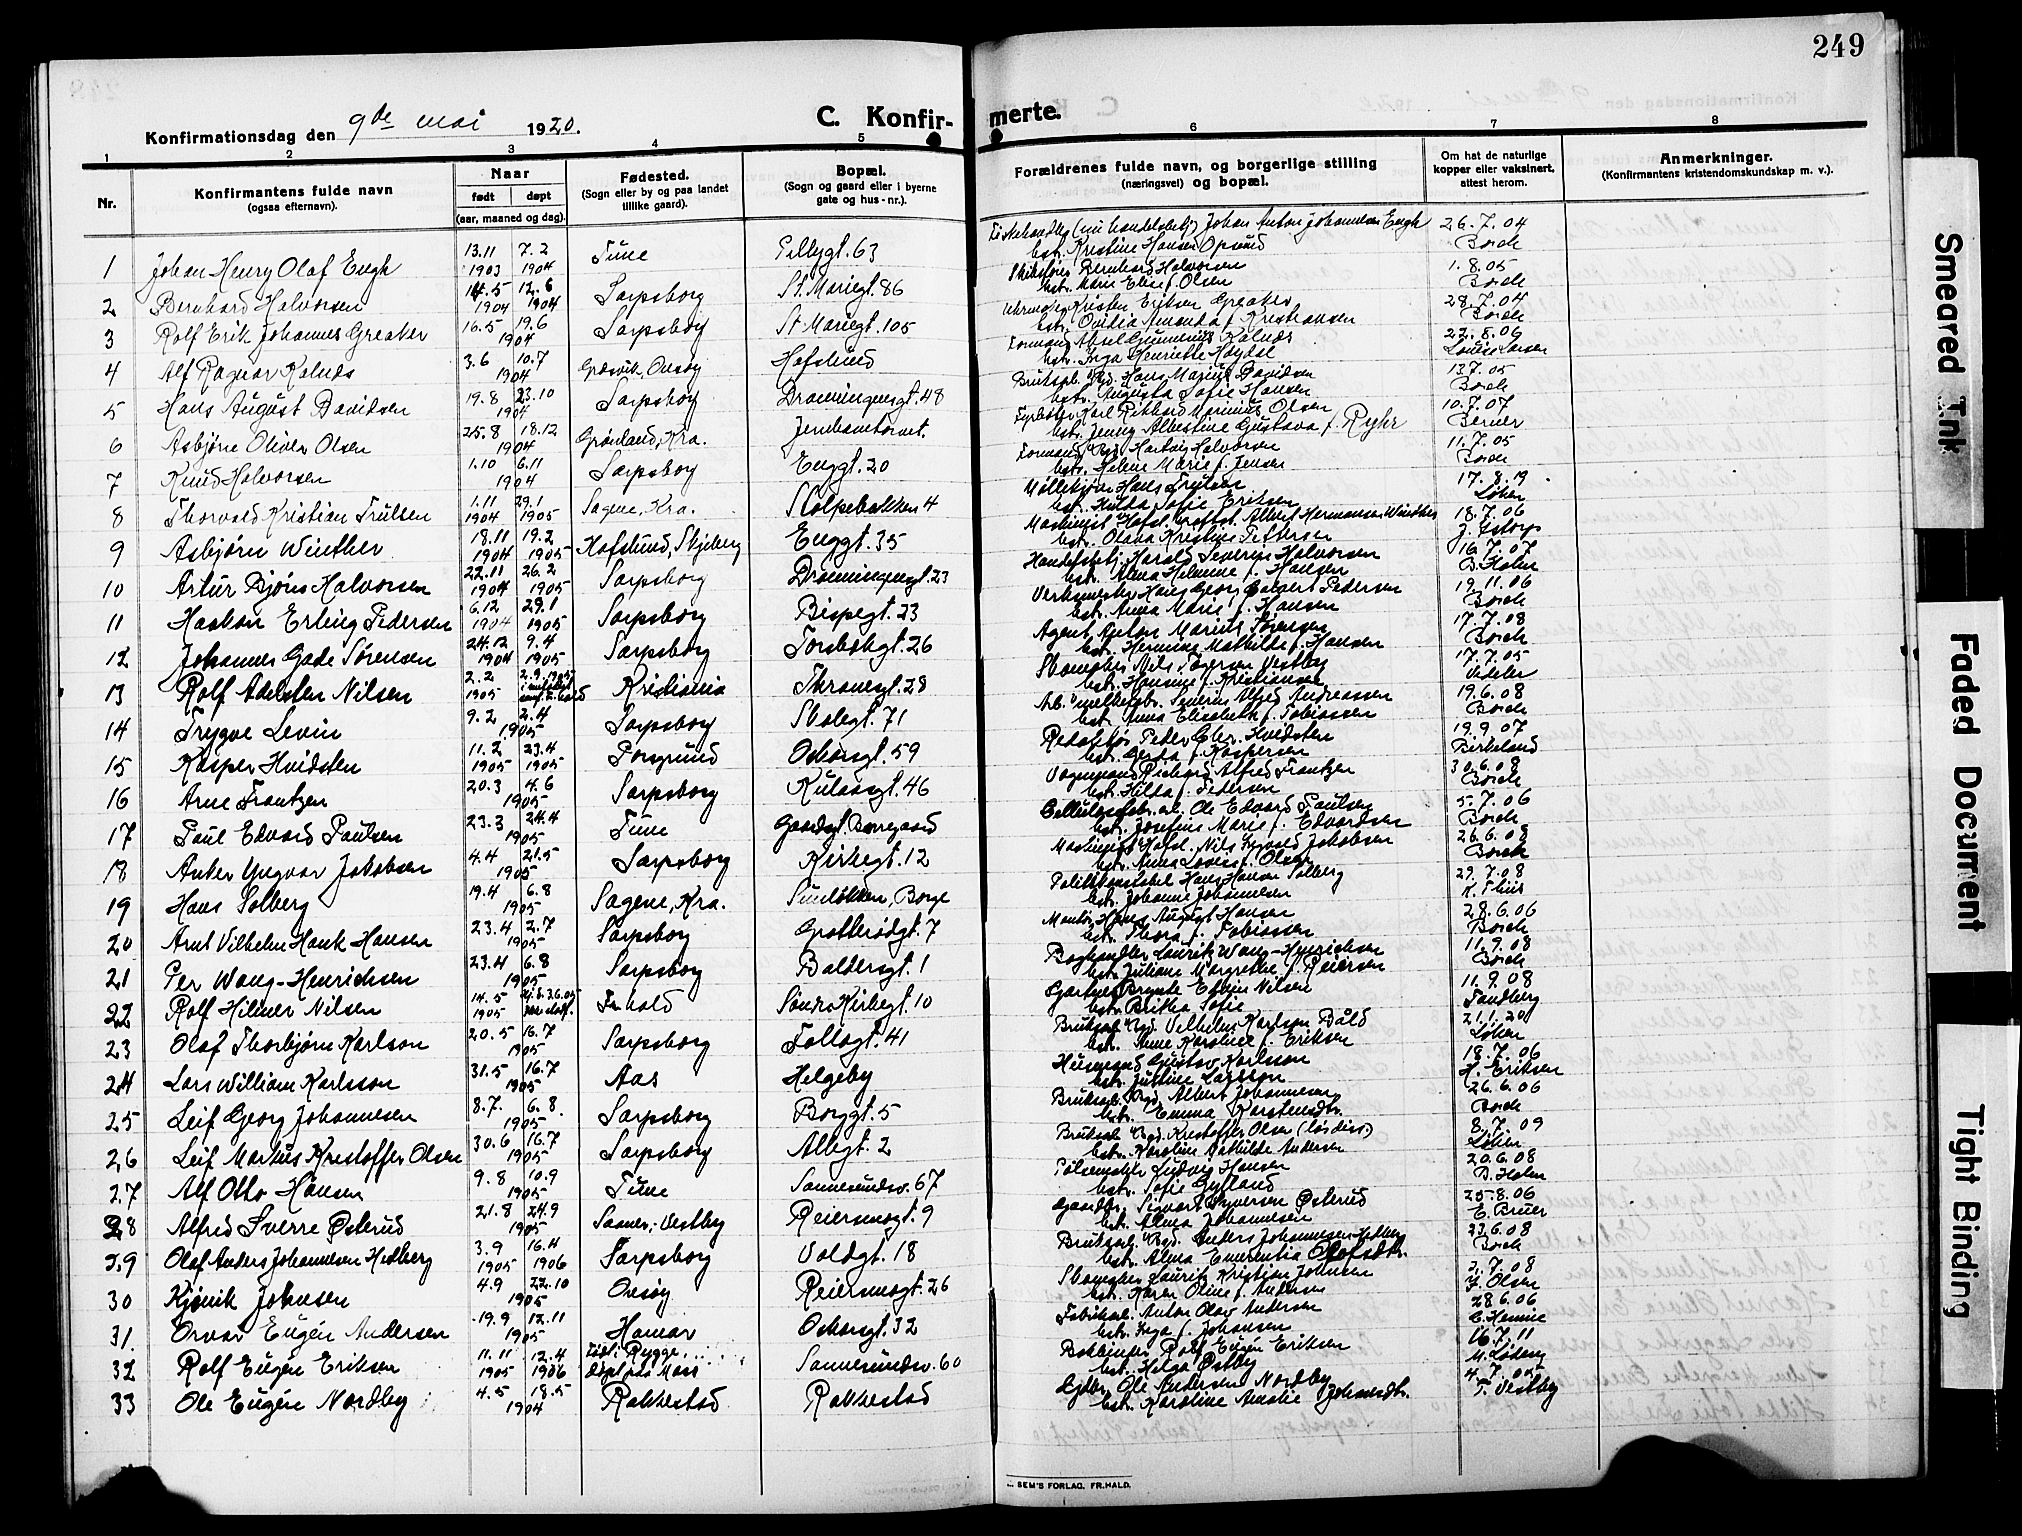 249
Konfirmationsdag den 9de mai 1920.
C. Konfir-
merte.
1 2 3 4 5 6 7 8
Nr.
Konfirmantens fulde navn
(ogsaa efternavn).
Naar
født døpt
(aar, maaned og dag).
Fødested.
(Sogn eller by og paa landet
tillike gaard).
Bopæl.
(Sogn og gaard eller i byerne
gate og hus-nr.).
Forældrenes fulde navn, og borgerlige stilling
(næringsvei) og bopæl.
Om hat de naturlige
kopper eller vaksinert,
attest herom.
Anmerkninger.
(Konfirmantens kristendomskundskap m. v.).
1 Johan Henry Olaf Engh 13.11 1903 7.2 1904 Tune 63 Johan Anton Johannesen Engh 26.7.04
bstr. Kristine Hansen Opsund Borch
2 Bernhard Halvorsen 14.5 1904 12.6 1904 Sarpsborg St. Mariegt. 86 Bernhard Halvorsen 1.8.05
bstr. Marie Elise f. Olsen Borch
3 Rolf Erik Johannes Greaker 16.5 19.6 1904 Sarpsborg St Mariegt. 105 Kristen Eriksen Greaker 28.7.04
bstr. Ovidia Amanda f. Kristiansen Borch
4 Alf Ragnar Kalnæs 3.6 10.7 1904 Græsvik, Onsøy Hafslund Formand Aksel Gunnerius Kalnæs 22.8.06
bstr. Inga Henriette Høydal Louise Larsen
5 Hans August Davidsen 19.8 23.10 1904 Sarpsborg Dronningensgt. 48 Hans Marius Davidsen 13.7.05
bstr. Augusta Sofie Hansen Borch
6 Asbjørn Oliver Olsen 25.8 18.12 1904 Grønland, Kra. Jernbanetorvet. Fyrbøter Karl Rikhard Marinius Olsen 10.7.07
bstr. Jenny Albertine Gustava f. Ryhr Berner
7 Knud Halvorsen 1.10 6.11 1904 Sarpsborg Enggt. 20 Formand Hartvig Halvorsen 11.7.05
bstr. Helene Marie f. Jensen Borch
8 Thorvald Kristian Trulsen 1.11 1904 29.1 1905 Sagene, Kra. Stolpebakken 4 Hans Trulsen 17.8.19
bstr. Hulda Sofie Eriksen Løken
9 Asbjørn Winther 18.11 1904 19.2 1905 Hafslund, Skjeberg Enggt. 35 Albert Hermansen Winther 18.7.06
bstr. Olava Kristine Pettersen
10 Artur Bjørn Halvorsen 22.11 1904 26.2 1905 Sarpsborg Dronningensgt. 23 Harald Severin Halvorsen 16.7.07
bstr. Alma Helmine f. Hansen B. Holm
11 Haakon Erling Pedersen 6.12 1904 29.1 1905 Sarpsborg Bispegt. 23 Verkmester Hans Georg Pedersen 19.11.06
bstr. Anna Marie f. Hansen Borch
12 Johannes Gade Sørensen 24.12 1904 9.4 1905 Sarpsborg Torsbekgt. 26 Agent Anton Marius Sørensen 17.7.08
bstr. Hermine Mathilde f. Hansen Borch
13 Rolf Adelsten Nilsen 2.2 1905 Kristiania Thranesgt. 28 Skomaker Nils Vestby 17.7.05
bstr. Hansine f. Kristiansen
14 Trygve Levin 9.2 2.4 1905 Sarpsborg Skolegt. 71 Severin Alfred Andreassen 19.6.08
bstr. Anna Elisabeth f. Tobiassen Borch
15 Kasper Hvidsten 11.2 1905 23.4 1905 Porsgrund Oskarsgt. 59 Redaktør Peder Chr. Hvidsten 19.9.07
bstr. Gerda f. Kaspersen Birkeland
16 Arne Frantzen 20.3 4.6 1905 Sarpsborg Kulaasgt. 46 Vognmand Richard Alfred Frantzen 30.6.08
bstr. Hilda f. Pedersen Borch
17 Paul Edvard Paulsen 23.3 24.4 1905 Tune Borregaard Ole Edvard Paulsen 5.7.06
bstr. Josefine Marie f. Edvardsen Borch
18 Anker Yngvar Jakobsen 4.4 21.5 1905 Sarpsborg Kirkegt. 12 Maskinist Hafsl. Nils Jakobsen 26.6.08
bstr. Anna Lovise f. Olsen Borch
19 Hans Solberg 19.4 6.8 1905 Sagene, Kra. Sundløkken, Borge Politikonstabel Hans Hansen Solberg 29.7.08
bstr. Johanne Johannesen K. Thiis
20 Arnt Vilhelm Hauk Hansen 23.4 2.7 1905 Sarpsborg Grotterødgt. 7 Montør Hans August Hansen 28.6.06
bstr. Thora f. Tobiassen Borch
21 Per Wang-Henrichsen 23.4 6.8 1905 Sarpsborg Baldersgt. 1 Boghandler Laurits Wang-Henrichsen 11.9.08
bstr. Juliane Margrethe f. Reiersen Borch
22 Rolf Hilmer Nilsen 14.5 1905 Søndre Kirkegt. 10 Edvin Nilsen 11.9.08
bstr. Britha Sofie Sandberg
23 Olaf Thorbjørn Karlson 20.5 16.7 1905 Sarpsborg Follogt. 41 Vilhelm Karlsen 21.1.20
bstr. Anne Karoline f. Eriksen Løken
24 Lars William Karlsson 31.5 16.7 1905 Aas Helgeby Husmand Gustav Karlsson 18.7.06
bstr. Justine Larsson H. Eriksen
25 Leif Georg Johannesen 8.7. 6.8. 1905 Sarpsborg Borggt. 5 Albert Johannesen 26.6.06
bstr. Emma Karstensdtr. Borch
26 Leif Markus Kristoffer Olsen 30.6 16.7 1905 Sarpsborg Albgt. 2 Kristoffer Olsen 8.7.09
bstr. Karoline Mathilde Andersen Løken
27 Alf Otto Hansen 9.8 10.9 1905 Tune Sannesundsv. 67 Pølsemaker Ludvig Hansen 20.6.08
bstr. Sofie Gylland B. Holm
28 Alfred Sverre Østerud 21.8 24.9 1905 Saaner, Vestby Reiersensgt. 9 Sigvart Syversen Østerud 25.8.06
bstr. Alma Johannesen E. Bruer
29 Olaf Anders Johannesen Hedberg 3.9 1905 16.4 1906 Sarpsborg Voldgt. 18 Anders Johannesen Hedberg 23.6.08
bstr. Alma Emerentia Olofsdtr. Borch
30 Kjønik Johnsen 4.9 22.10 1905 Onsøy Reiersensgt. 26 Laurits Kristian Johnsen 2.7.08
bstr. Karen Oline f. Andersen Olsen
31. Orvar Eugén Andersen 19.9 12.11 1905 Hamar Oskarsgt. 32 Anton Olav Andersen 28.6.06
bstr. Inga f. Johansen
32 Rolf Eugén Eriksen 11.11 1905 12.4 1906 Født i Rygge, Døpt paa Moss Sannesundsv. 60 Rolf Eugén Eriksen 16.7.11
bstr. Helga Østby
33 Ole Eugén Nordby 4.5 18.5 1904 Rakkestad Rakkestad Ole Andersen Nordby 4.7.05
bstr. Karoline Amalie Johansdtr. T. Vestby
SEM'S FORLAG, FR.HALD.
Smeared Ink
Faded Document
Tight Binding